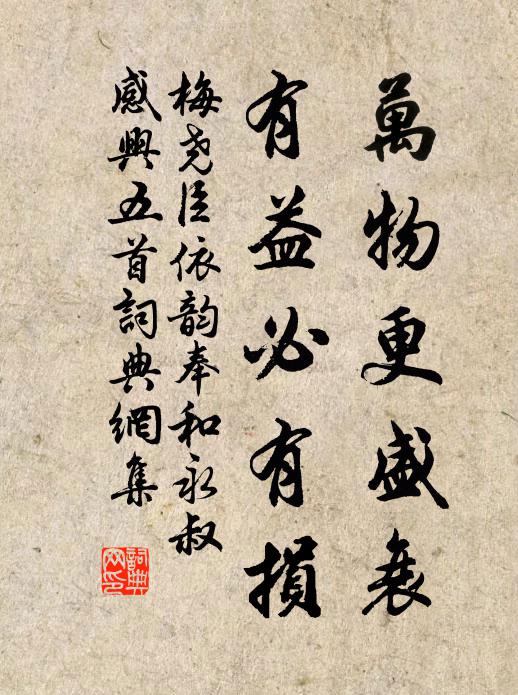 萬物更盛衰
有益必有損
梅堯臣依韵奉和永叔
感興五首詞典網集
詞典
网印